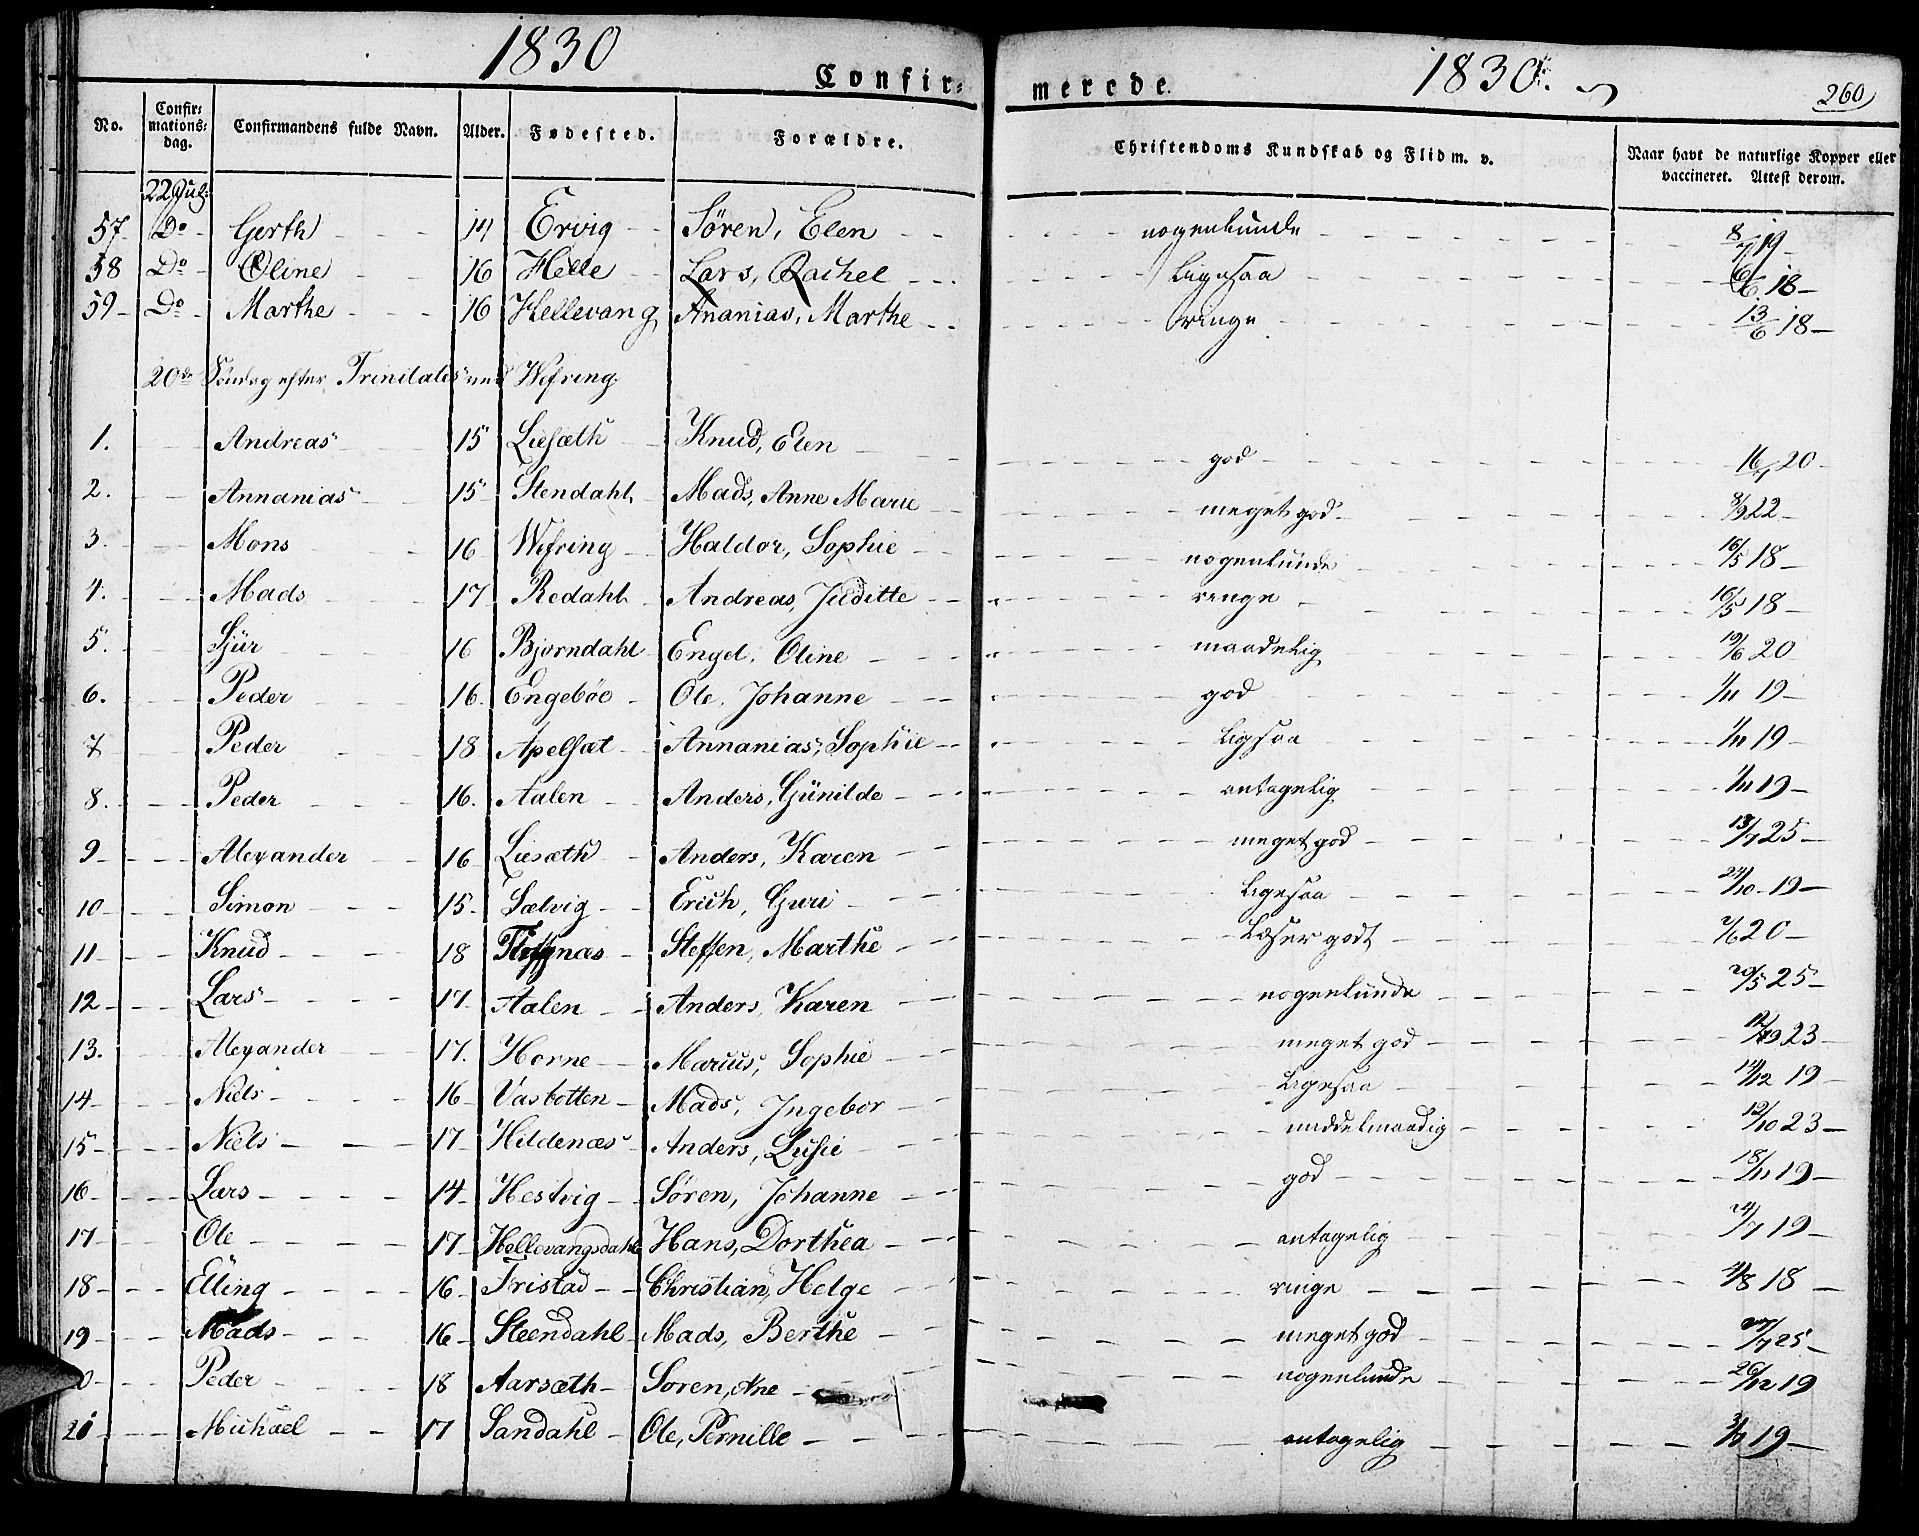 1830 Confir= merede. 1830.
260
No. Confir= mations= dag. Confirmandens fulde Navn. Alder. Fødested. Forældre. Christendoms Kundskab og Flid m. v. Naar havt de naturlige Kopper eller vaccineret. Attest derom.
22 Jul:
57 Do Gerth 14 Ervig Søren, Elen nogenlunde 19
58 Do Oline 16 Helle Lars, Rachel Ligesaa 18
59 Do Marthe 16 Hellevang Ananias, Marthe ringe 13/6 18
20de Søndag efter Trinitates ved Wefring
1. Andreas 15 Liesæth Knud, Elen god 20
2. Annanias 15 Stendahl Mads, Anne Marie meget god 8/9 22
3. Mons 16 Wefring Haldor, Sophie nogenlunde 16/5 18
4. Mads 17 Redahl Andreas, Juditte ringe 16/5 18
5. Sjür 16 Bjorndahl Engel, Oline maadelig 19/6 20
6. Peder 16. Engebøe Ole, Johanne god 1/11 19
7 Peder 18 Apelsæt Annanias, Sophie Ligsaa 1/11 19
8. Peder 16. Aalen Anders, Günilde antagelig 1/11 19
9 Alexander 16 Liesæth Anders, Karen meget god 13/7 25
10 Simon 15. Sælvig Erich, Guri Ligesaa 19
11 Knud 18 Steffen, Marthe Læser godt 20
12 Lars 17. Aalen Anders, Karen nogenlunde 20/5 25
13. Alexander 17. Horne Marius, Sophie meget god 23
14 Niels 16 Vasbotten Mads, Ingebor Ligesaa 19
15 Niels 17 Hildenæs Anders, Lusie middelmaadig 12/10 23
16 Lars 14 Hestvig Søren, Johanne god 18/11 19
17 Ole 17 Hellevangsdahl Hans, Dorthea antagelig 19
18 Elling 16 Fristad Christian, Helge ringe 18
19 Mads 16 Steendahl Mads, Berthe meget god 25
0 Peder 18 Aarsæth Soren, Ane nogenlunde 26/12 19
21 Michael 17 Sandahl Ole, Pernille antagelig 19